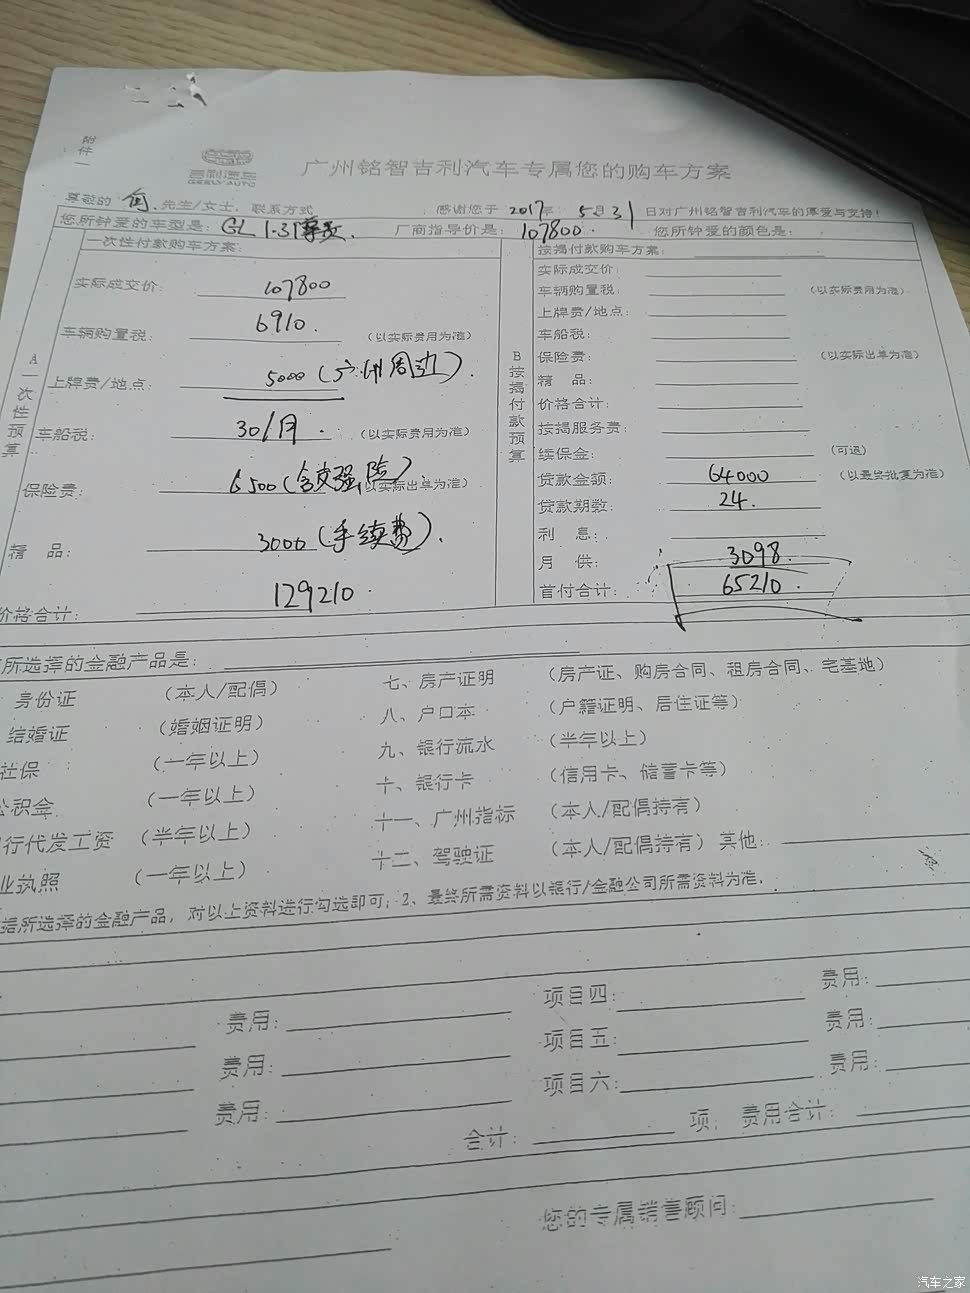 附件一
吉利汽车
GEELY AUTO
广州铭智吉利汽车专属您的购车方案
尊敬的 先生/女士: 联系方式 , 感谢您于 2017年 5月 31 日对广州铭智吉利汽车的厚爱与支持!
您所钟爱的车型是: GL 1.3T尊贵 厂商指导价是: 107800. 您所钟爱的颜色是:
A一次性预算
一次性付款购车方案:
实际成交价: 107800
车辆购置税: 6910. (以实际费用为准)
上牌费/地点: 5000 (广州周边).
车船税: 30/月. (以实际费用为准)
保险费: 6500 (含交强险). (以实际出单为准)
精 品: 3000 (手续费).
价格合计: 129210.
B按揭付款预算
按揭付款购车方案:
实际成交价:
车辆购置税: (以实际费用为准)
上牌费/地点:
车船税:
保险费: (以实际出单为准)
精 品:
价格合计:
按揭服务费:
续保金: (可退)
贷款金额: 64000 (以最终批复为准)
贷款期数: 24.
利 息:
月 供: 3098.
首付合计: 65210.
所选择的金融产品是:
身份证 (本人/配偶) 七、房产证明 (房产证、购房合同、租房合同、宅基地)
结婚证 (婚姻证明) 八、户口本 (户籍证明、居住证等)
社保 (一年以上) 九、银行流水 (半年以上)
公积金 (一年以上) 十、银行卡 (信用卡、储蓄卡等)
行代发工资 (半年以上) 十一、广州指标 (本人/配偶持有)
业执照 (一年以上) 十二、驾驶证 (本人/配偶持有) 其他:
据所选择的金融产品, 对以上资料进行勾选即可; 2、最终所需资料以银行/金融公司所需资料为准.
费用: 项目四: 费用:
费用: 项目五: 费用:
费用: 项目六: 费用:
合计: 项; 费用合计:
您的专属销售顾问:
汽车之家